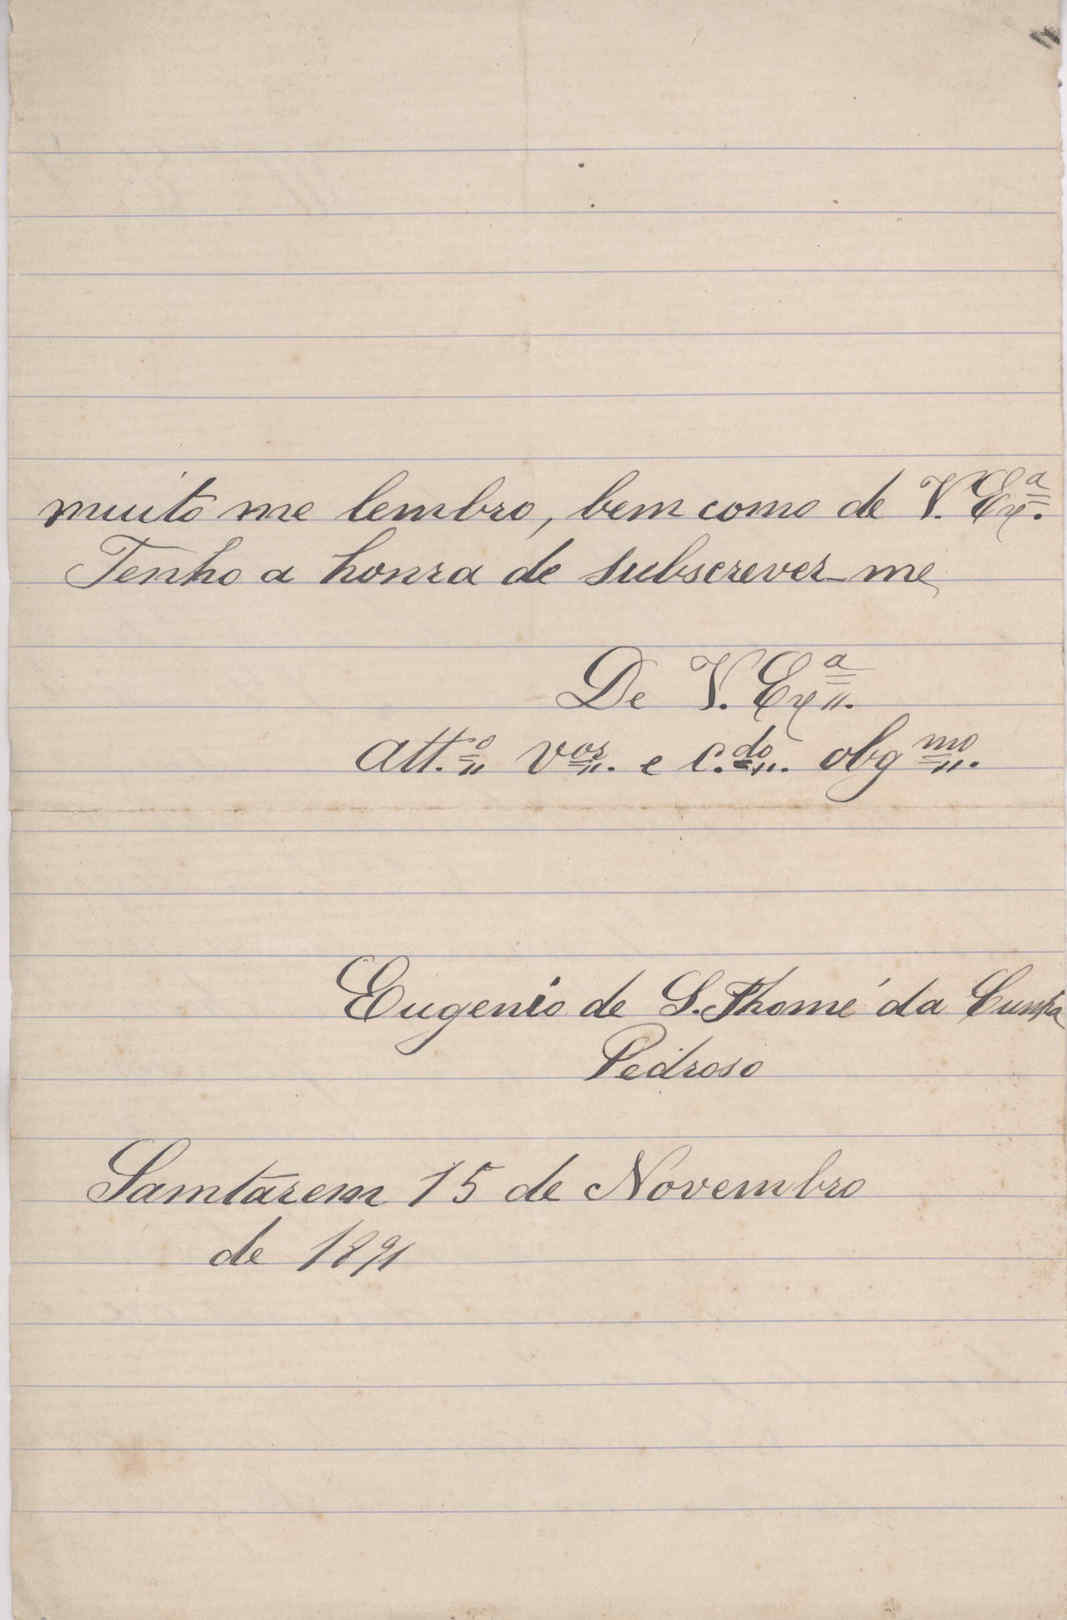 muito me lembro, bem como de V. Ex.ª
Tenho a honra de subscrever-me
De V. Ex.ª
att.º v.or e c.do obg.mo
Eugenio de S. Thomé da Cunha
Pedroso
Samtarem 15 de Novembro
de 1891